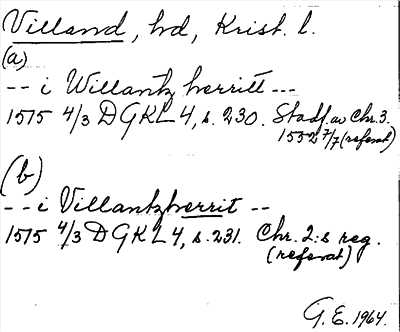 Villand, hd, Krist. l.
(a)
-- i Willantz herritt ---
1515 4/3 DGKL 4, s. 230. Stadf. av Chr. 3.
1552 7/7 (referat)
(b)
-- i Villantzherrit --
1515 4/3 DGKL 4, s. 231. Chr. 2:s reg.
(referat)
G. E. 1964.